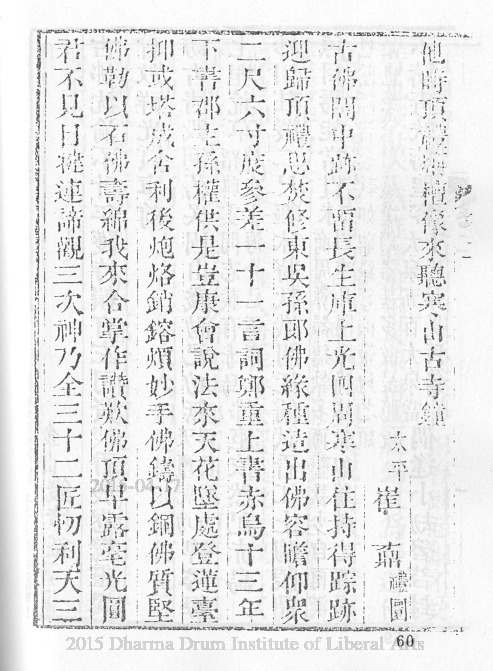 他時頂禮栴檀像來聽寒山古寺鐘
太平 崔 鼒 禮園
古佛閣中跡不留長生庫上光四周寒山住持得踪跡
迎歸頂禮思焚修東吳孫郎佛緣種造出佛容瞻仰衆
二尺六寸度參差一十一言詞鄭重上書赤烏十三年
下書都主孫權供是豈康會說法來天花墜處登蓮臺
抑或塔成舍利後炮烙銷鎔煩妙手佛鑄以銅佛質堅
佛勒以石佛壽綿我來合掌作讚歎佛頂早露毫光圓
君不見目犍連諦觀三次神乃全三十二匠忉利天三
60
2015 Dharma Drum Institute of Liberal Arts